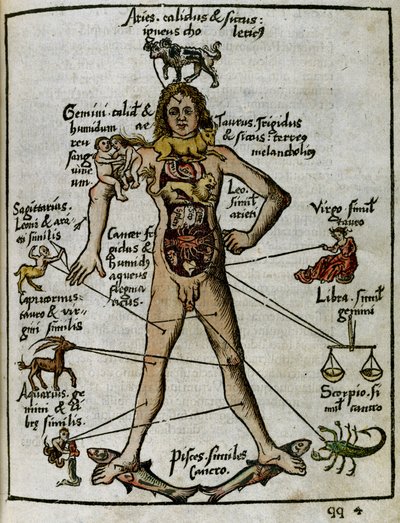 Aries. calidus & siccus:
igneus cho leric9
Gemini. calid9 & ae
humidum
reu
sang
uine
um
Taurus. frigidus
& siccus: terre9
melancholic9
Leo.
simil9
arieti
Sagittarius.
Leoni & ari
eti similis
Cancer fri
gidus &
humid9
aqueus
flegma
ticus
Virgo. simil9
tauro
Capricornus.
tauro & vir
gini similis
Libra. simil9
gemini
Aquarius. ge
mini & li
brę similis
Scorpio. si
mil9 cancro
Pisces. similes
Cancro.
gg 4